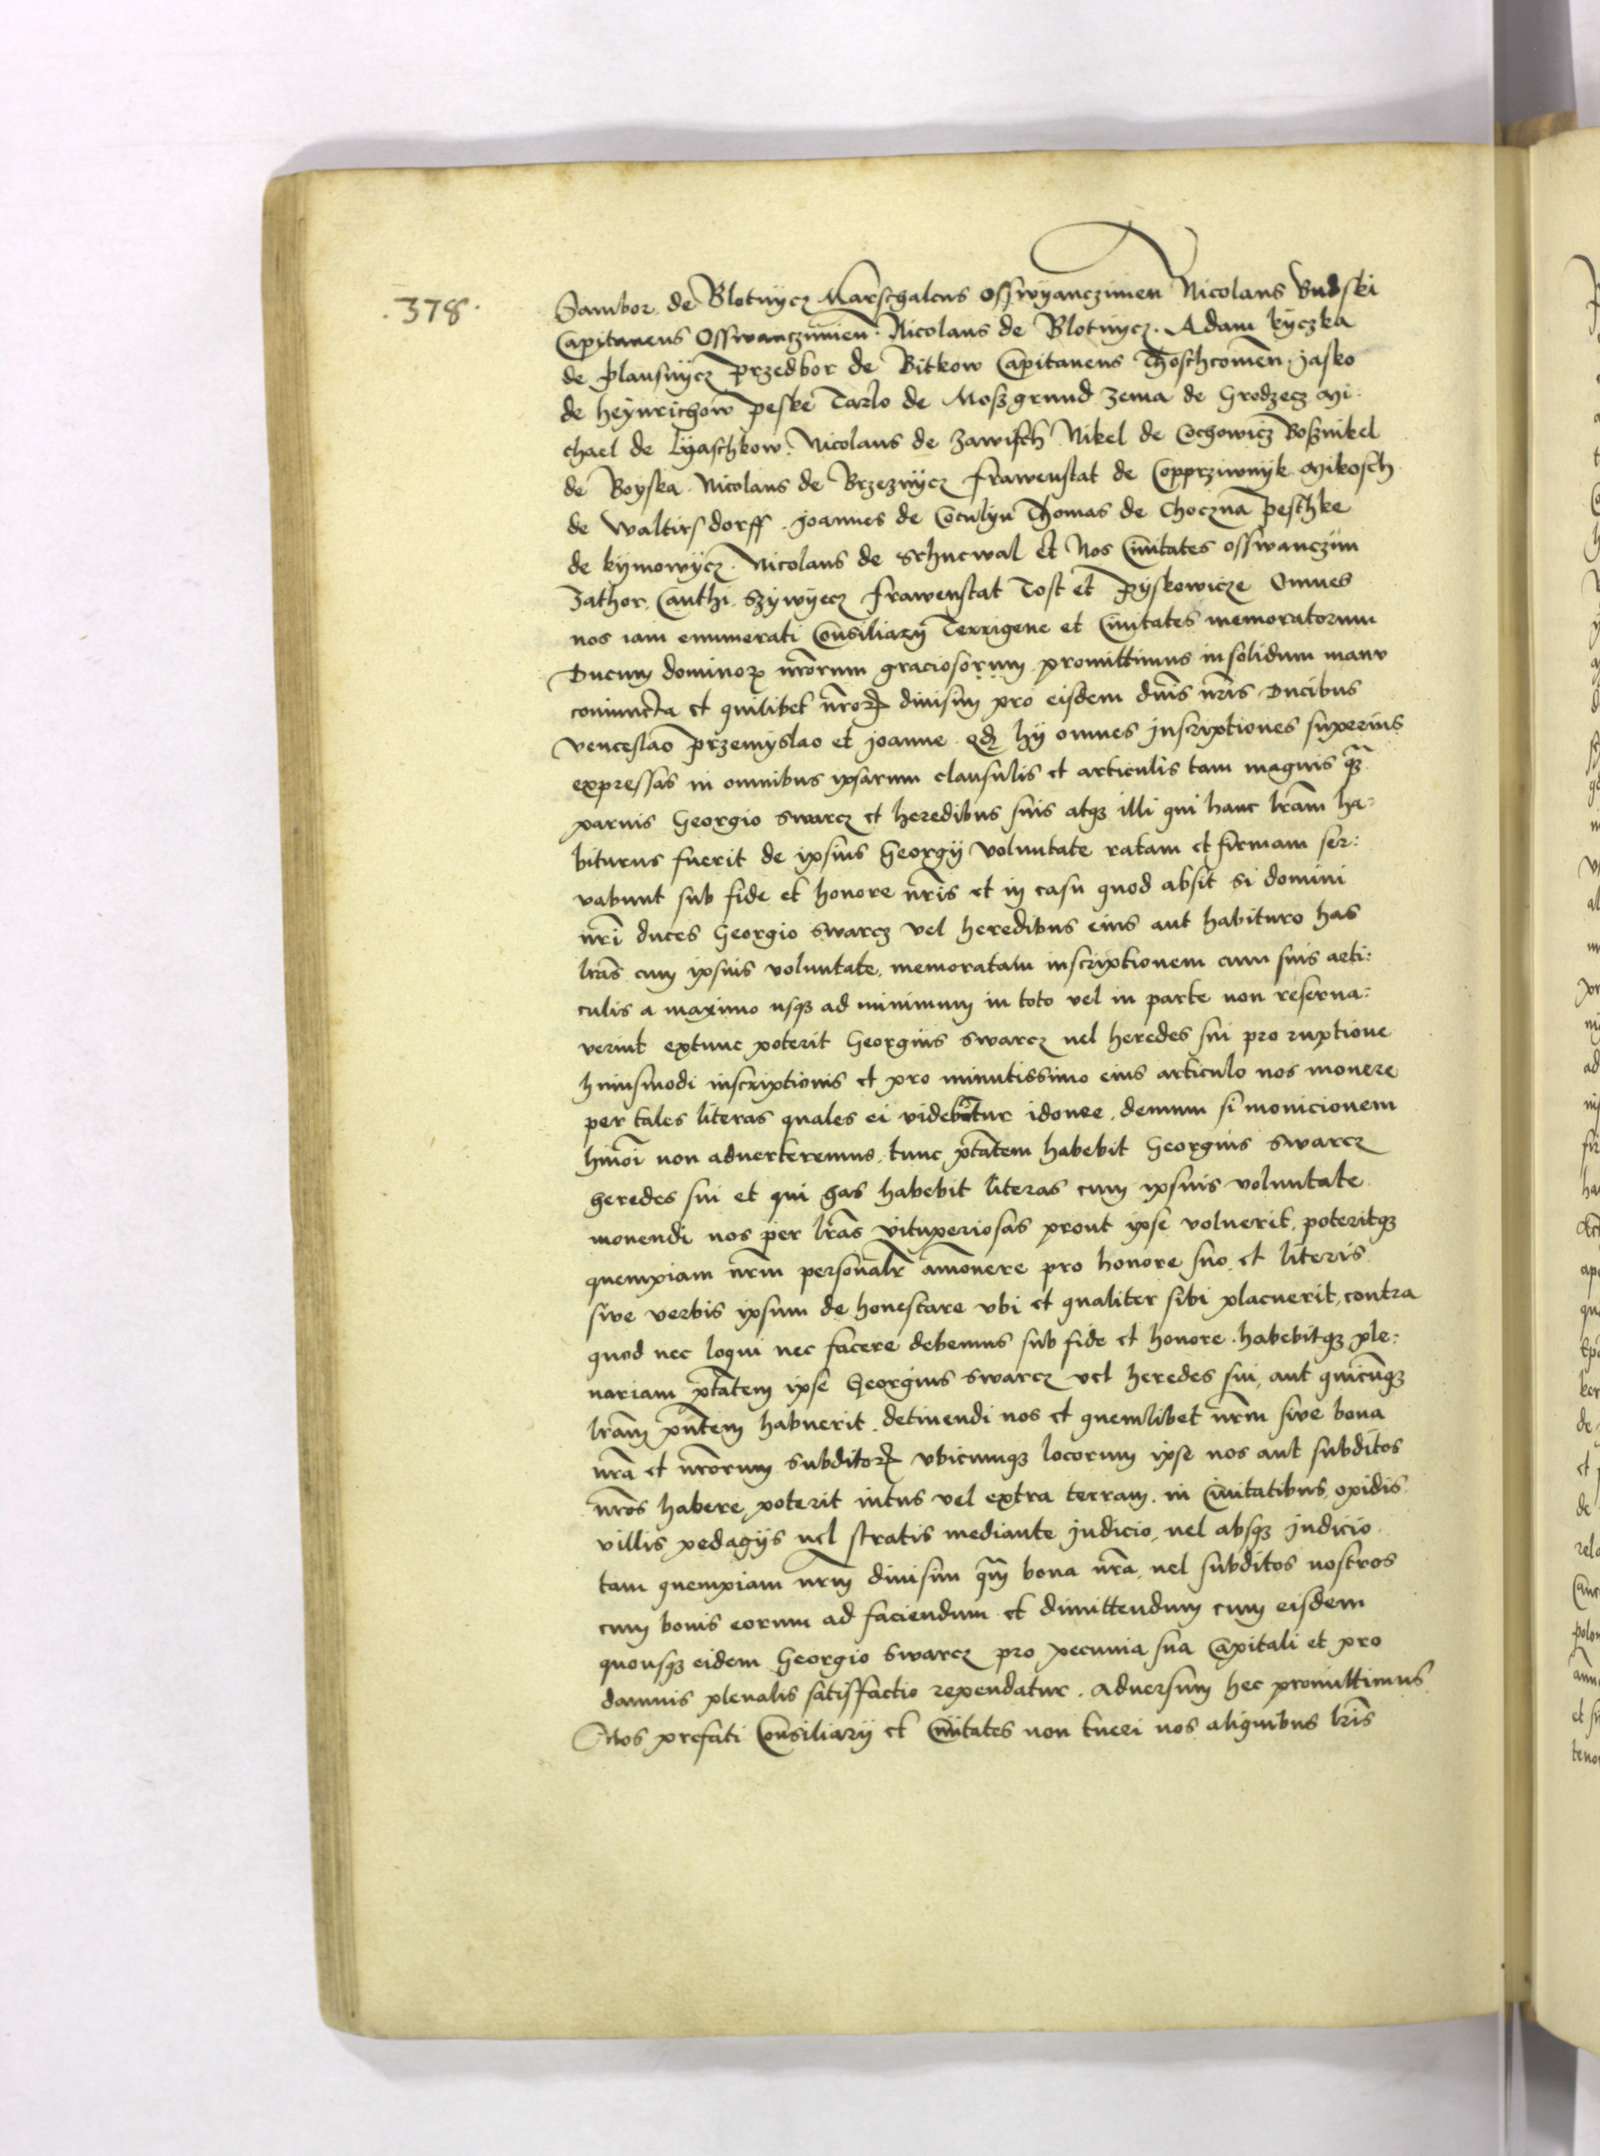 .378.
Sambor de Blotnycz Marschalcus Osswyanczimen Nicolaus Rudski
Capitaneus Osswanczimien̄. Nicolaus de Blotnycz. Adam Kyczka
de Plausnycz Przedbor de Bitkow Capitaneus Thoschconien̄ Jasko
de Heynrichow Peske Tarlo de Moßgrund Zema de Grodzecz Mi:
chael de Lyaschkow. Nicolaus de Zawisch Nikel de Cochowicz Boßnikel
de Boyska. Nicolaus de Brzeznycz Frawenstat de Copprziwnyk Mikosch
de Waltirsdorff. Joannes de Coculyn Thomas de Choczna Peschke
de Kymowycz. Nicolaus de Schnewal et Nos Ciuitates Osswanczim
Zathor Canthi Szywyecz Frawenstat Tost et Pyskowicze Omnes
nos iam enumerati Consiliarÿ Terrigene et Ciuitates memoratorum
Ducum dominoꝝ nr̄orum graciosorum promittimus in solidum manu
coniuncta et quilibet nr̄oꝝ diuisim pro eisdem dn̄is nr̄is Ducibus
Venceslao Przemyslao et Joanne qd̄ hÿ omnes inscriptiones superius
expressas in omnibus ipsarum clausulis et articulis tam magnis q̄ꝫ
paruis Georgio Swarcz et heredibus suis atqꝫ illi qui hanc lr̄am ha:
biturus fuerit de ipsius Georgÿ voluntate ratam et firmam ser:
vabunt sub fide et honore nr̄is et in casu quod absit si domini
nr̄i duces Georgio Swarcz vel heredibus eius aut habituro has
lr̄as cum ipsius voluntate. memoratam inscriptionem cum suis arti:
culis a maximo usqꝫ ad minimum in toto vel in parte non reserua:
verint extunc poterit Georgius Swarcz uel heredes sui pro ruptione
huiusmodi inscriptionis et pro minutissimo eius articulo nos monere
per tales literas quales ei videbatur idonee. demum si monicionem
hmōi non aduerteremus. tunc ptātem habebit Georgius Swarcz
heredes sui et qui has habebit literas cum ipsius voluntate
monendi nos per lr̄as vituperiosas prout ipse voluerit. poteritqꝫ
quempiam nr̄m personalr̄ amonere pro honore suo et literis
sive verbis ipsum de honestare vbi et qualiter sibi placuerit, contra
quod nec loqui nec facere debemus sub fide et honore. habebitqꝫ ple:
nariam ptātem ipse Georgius Swarcz vel heredes sui, aut quicūqꝫ
lr̄am pn̄tem habuerit. detinendi nos et quemlibet nr̄m sive bona
nr̄a et nr̄orum subditoꝝ vbicumqꝫ locorum ipse nos aut subditos
nr̄os habere poterit intus vel extra terram. in Ciuitatibus, opidis
villis pedagÿs uel stratis mediante judicio, uel absqꝫ judicio
tam quempiam nr̄m diuisim qm̄ bona nr̄a, uel subditos nostros
cum bonis eorum ad faciendum et dimittendum cum eisdem
quousqꝫ eidem Georgio Swarcz pro pecunia sua Capitali et pro
damnis plenalis satisfactio rependatur. Aduersum hec promittimus
Nos prefati Consiliarÿ et Ciuitates non tueri nos aliquibus lr̄is